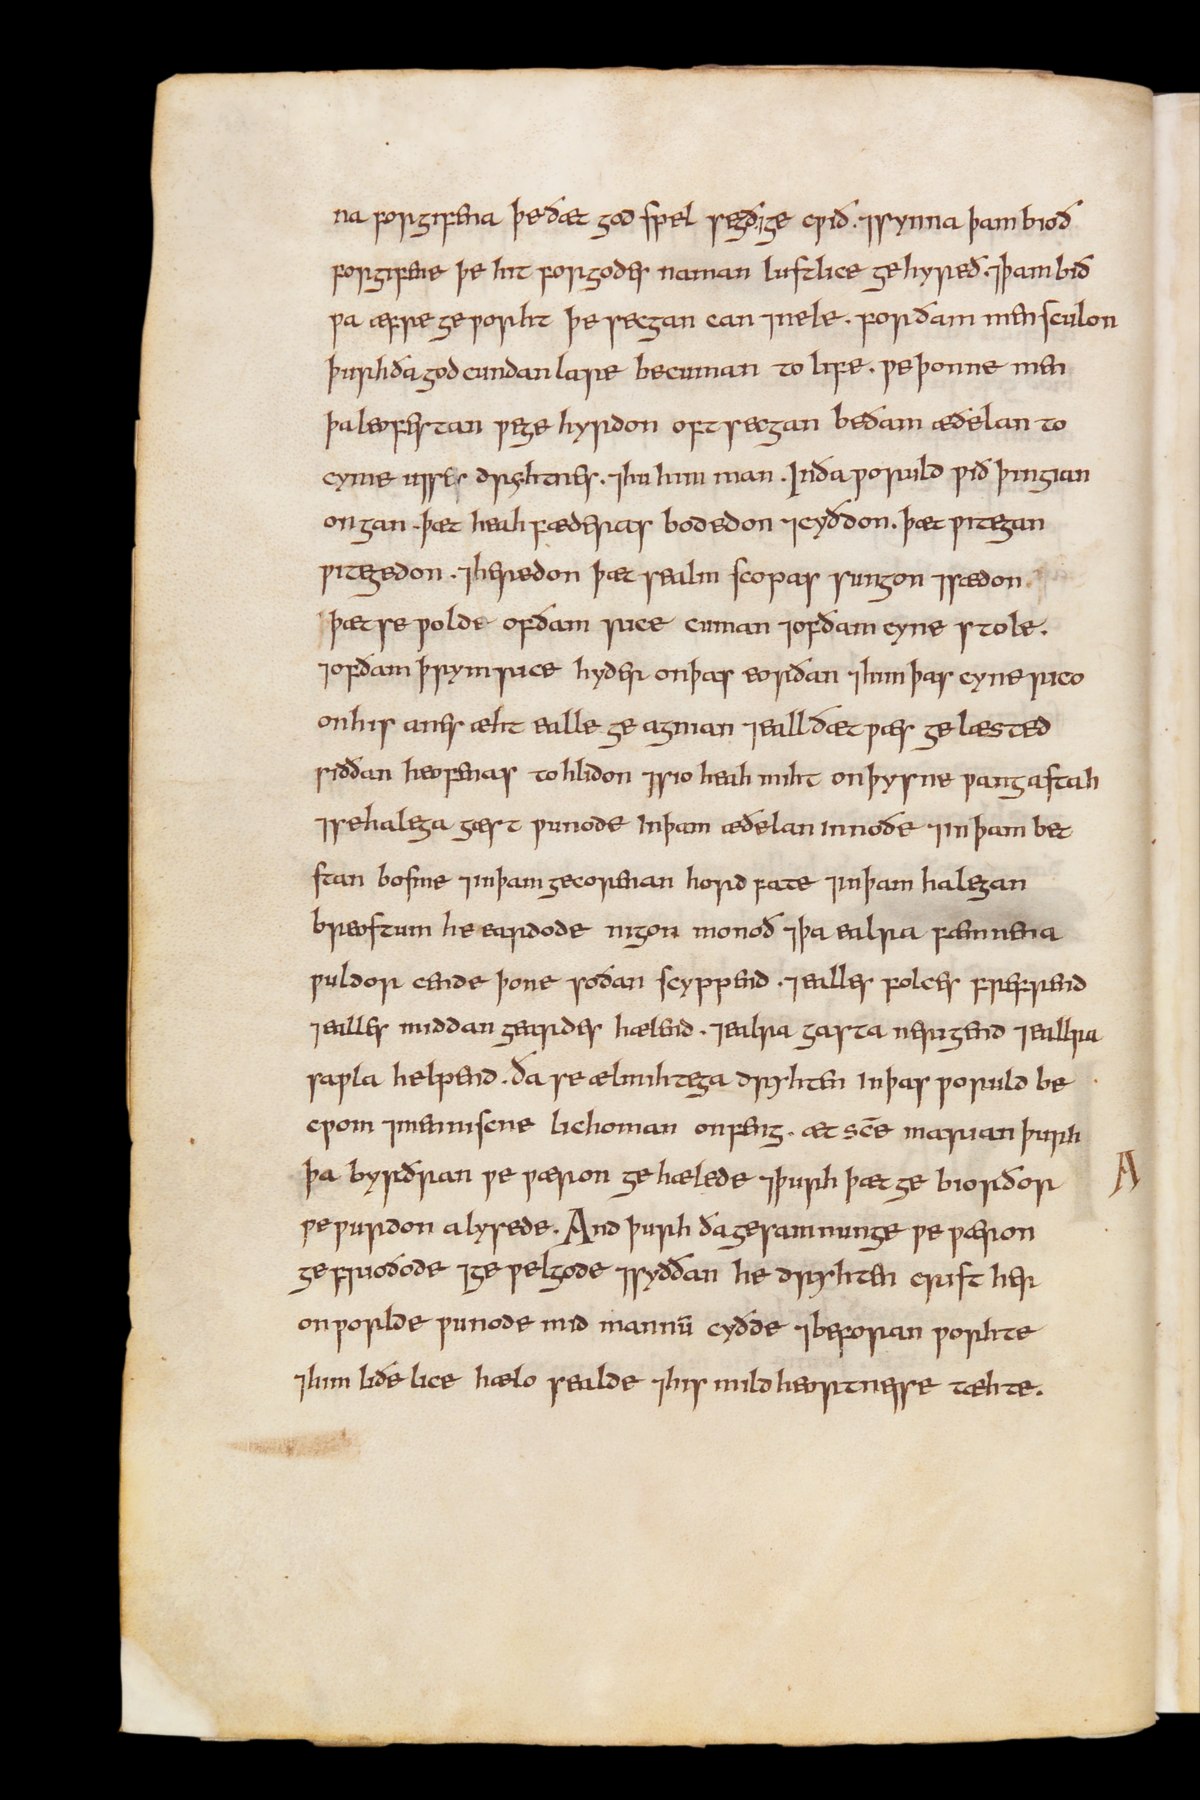 na forgifena þe ðæt god spel segð ⁊ge cƿið · ⁊synna þam bioð
forgifene þe hit for godes naman lustlice gehyreð · ⁊þam bið
ƿa æfre geƿorht þe secgan can ⁊nele · for ðam men sculon
þurh ða god cundan lare becuman to life · ƿe þonne men
þa leofestan ƿe ge hyrdon oft secgan be ðam æðelan to
cyme usses drihtnes · ⁊hu him man · In ða ƿoruld ƿið þingian
ongan · þæt heah fæderas bodedon ⁊cyðdon · þæt ƿitegan
ƿitegedon · ⁊heredon þæt sealm scopas sungon ⁊sædon
þæt se ƿolde of ðam rice cuman ⁊of ðam cyne stole ·
⁊of ðam þrym rice hyder on þas eorðan ⁊him þas cyne rico
on his anes æht ealle ge agnian ⁊eall ðæt ƿæs ge læsted
siððan heofenas tohlidon ⁊sio heah miht on þysne ƿang astah
⁊se halega gæst ƿunode in þam æðelan innoðe ⁊in þam bet
stan bosme ⁊in þam gecorenan hord fate ⁊in þam halegan
breostum he eardode nigon monoð ⁊þa ealra fæmnena
ƿuldor cende þone soðan scyppend · ⁊ealles folces frefrend
⁊ealles middan geardes hælend · ⁊ealra gasta nerigend ⁊ealra
saƿla helpend · ða se ælmihtega dryhten in þas ƿoruld be
cƿom ⁊menniscne lichoman onfeng · æt sc̄e marian þurh
þa byrðran ƿe ƿæron ge hælede ⁊þurh þæt ge beorðor
ƿe ƿurdon alysede · And þurh ða gesamnunge ƿe ƿæron
gefrioðode ⁊ge ƿelgode ⁊syððan he dryhten crist her
on ƿorlde ƿunode mid mannū cyðde ⁊beforan ƿorhte
⁊him liðe lice hælo sealde ⁊his mild heortnesse tæhte ·
A